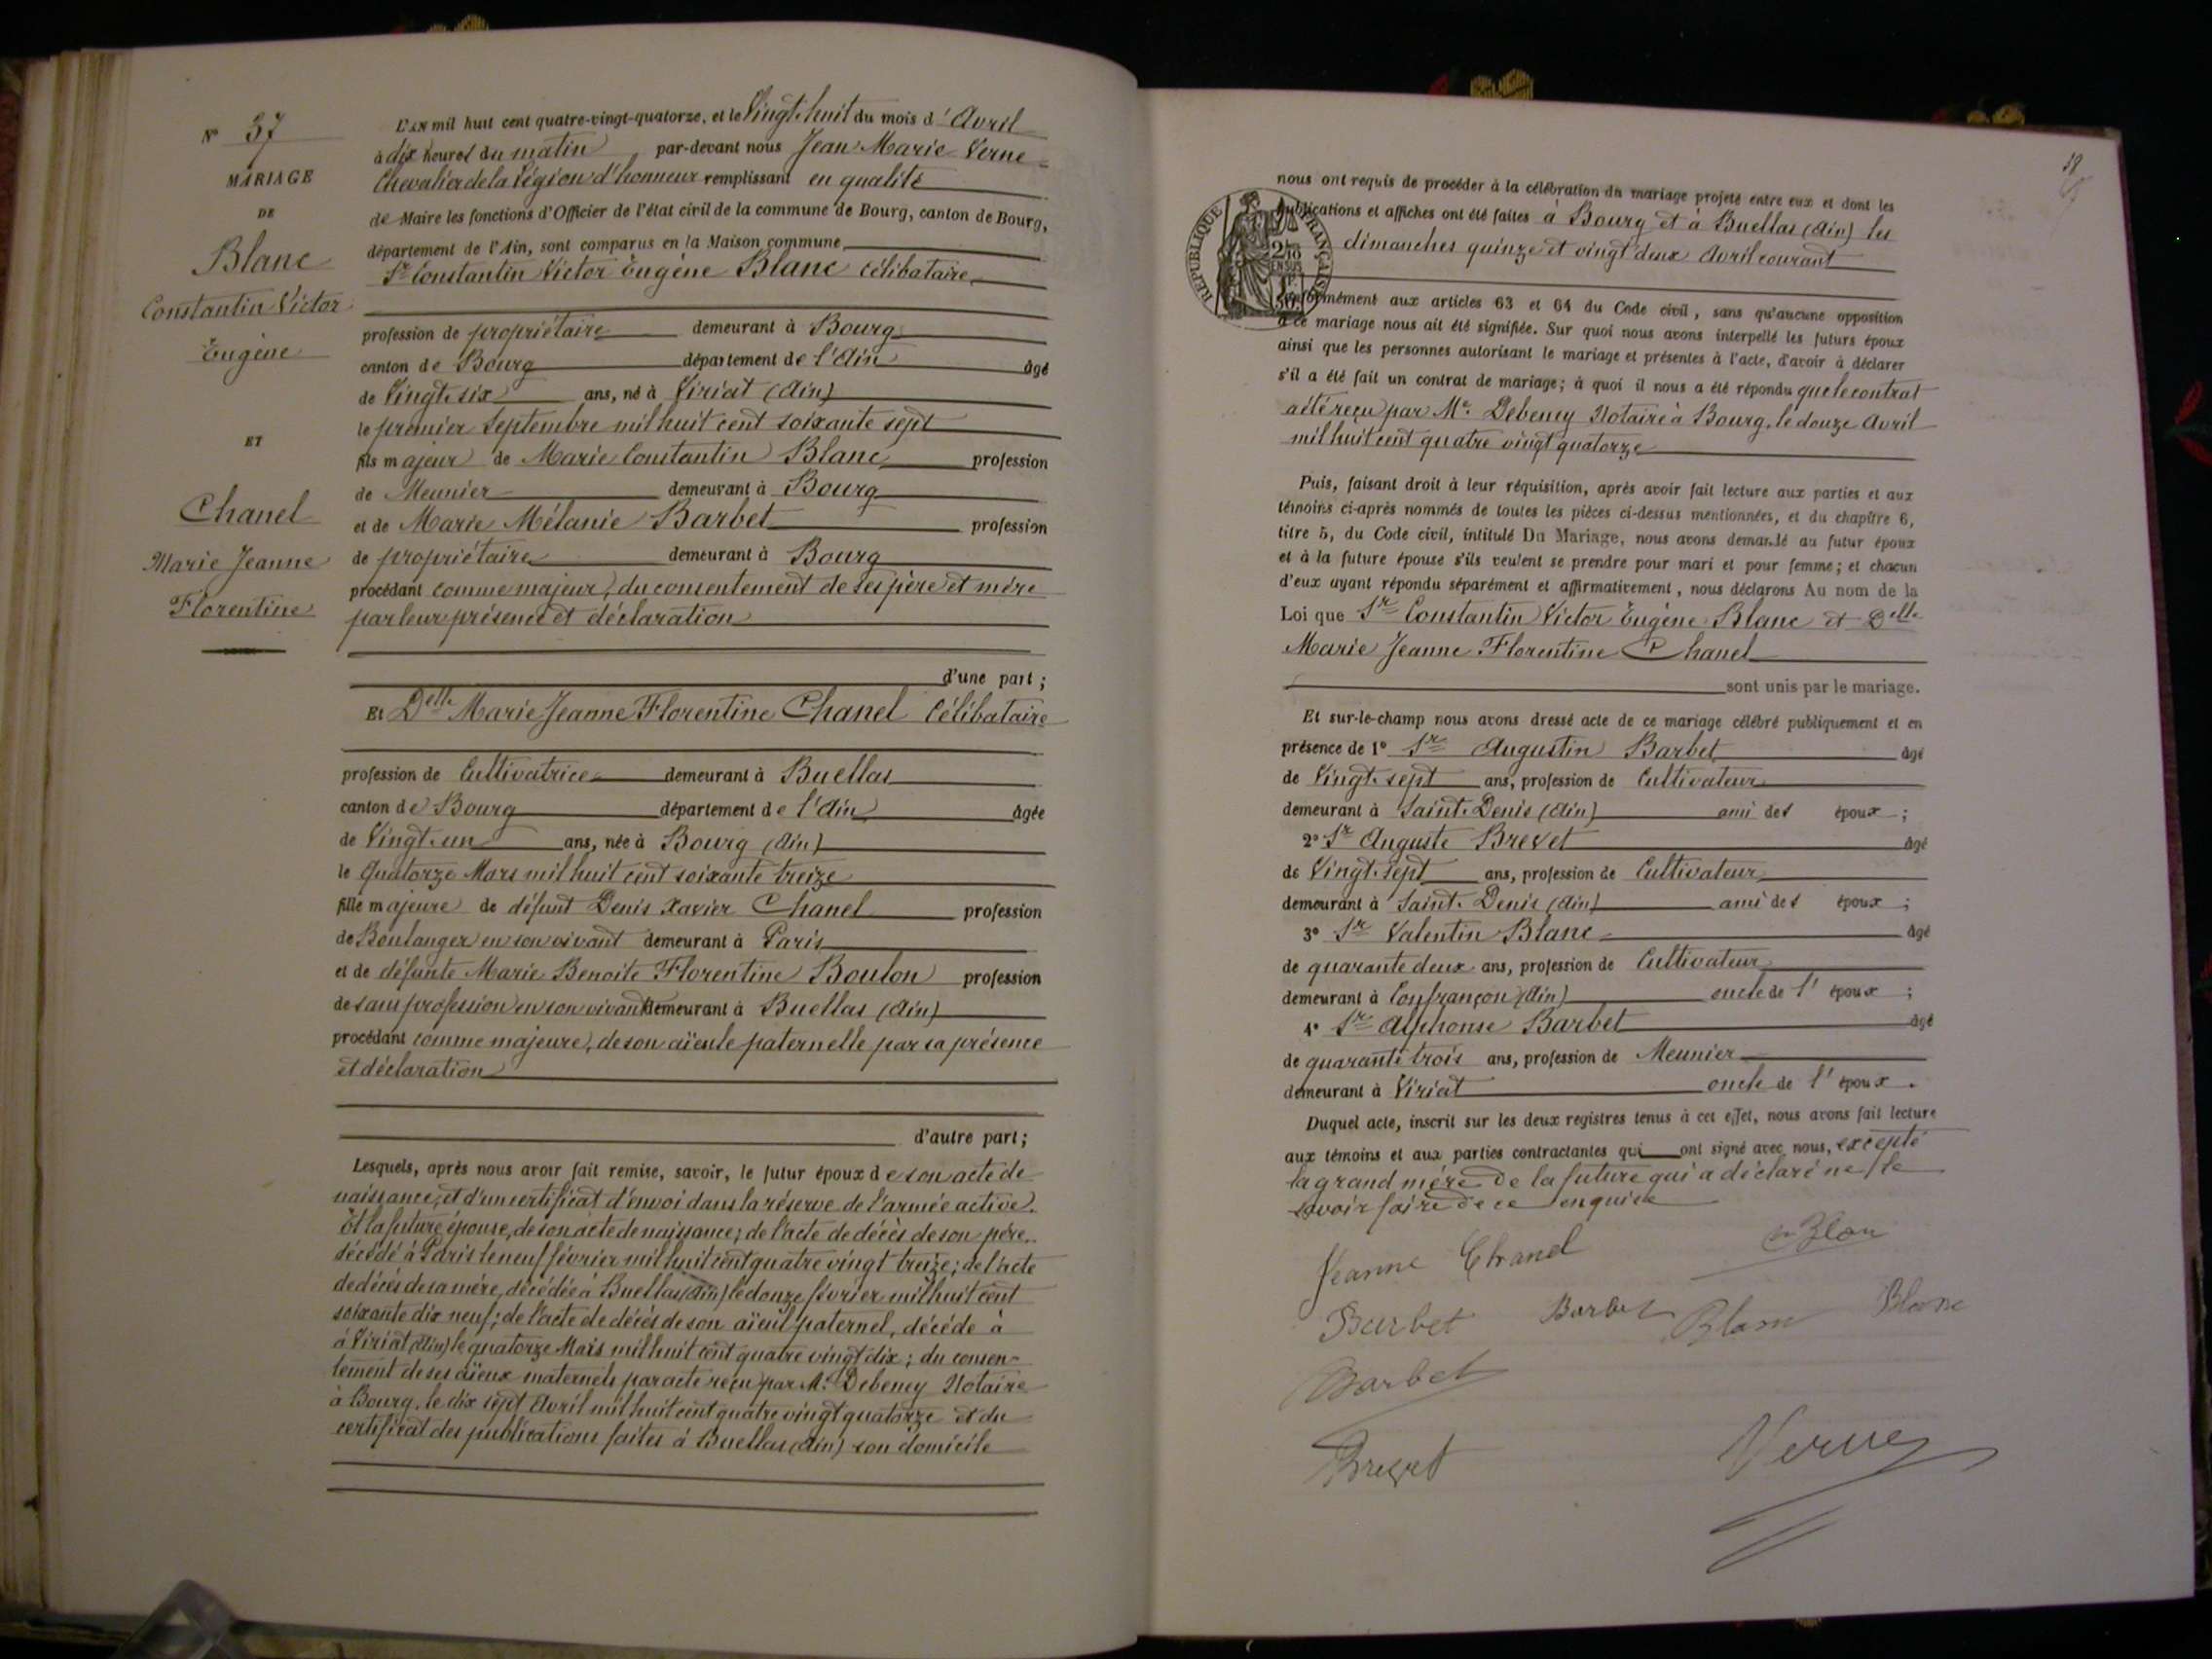 N° 37
MARIAGE
DE
Blanc
Constantin Victor
Eugène
ET
Chanel
Marie Jeanne
Florentine
L'AN mil huit cent quatre-vingt-quatorze, et le Vingt-huit du mois d'Avril
à dix heures du matin par-devant nous Jean Marie Verne
Chevalier de la Légion d'honneur remplissant en qualité
de Maire les fonctions d'Officier de l'état civil de la commune de Bourg, canton de Bourg,
département de l'Ain, sont comparus en la Maison commune
Sr Constantin Victor Eugène Blanc célibataire
profession de propriétaire demeurant à Bourg
canton de Bourg département de l'Ain âgé
de Vingt-six ans, né à Viriat (Ain)
le premier Septembre mil huit cent soixante sept
fils majeur de Marie Constantin Blanc profession
de Meunier demeurant à Bourg
et de Marie Mélanie Barbet profession
de propriétaire demeurant à Bourg
procédant comme majeur, du consentement de ses père et mère
par leur présence et déclaration
d'une part ;
Et Delle Marie Jeanne Florentine Chanel Célibataire
profession de Cultivatrice demeurant à Buellas
canton de Bourg département de l'Ain âgée
de Vingt-un ans, née à Bourg (Ain)
le Quatorze Mars mil huit cent soixante treize
fille majeure de défunt Denis Xavier Chanel profession
de Boulanger en son vivant demeurant à Paris
et de défunte Marie Benoite Florentine Boulon profession
de sans profession en son vivant demeurant à Buellas (Ain)
procédant comme majeure, de son aïeule paternelle par sa présence
et déclaration
d'autre part ;
Lesquels, après nous avoir fait remise, savoir, le futur époux de son acte de
naissance, et d'un certificat d'envoi dans la réserve de l'armée active.
Et la future épouse, de son acte de naissance ; de l'acte de décès de son père
décédé à Paris le neuf février mil huit cent quatre vingt treize ; de l'acte
de décès de sa mère, décédée à Buellas (Ain) le douze février mil huit cent
soixante dix neuf ; de l'acte de décès de son aïeul paternel, décédé à
à Viriat (Ain) le quatorze Mars mil huit cent quatre vingt dix ; du consen-
tement de ses aïeux maternels par acte reçu par Me Debeney Notaire
à Bourg, le dix sept Avril mil huit cent quatre vingt quatorze et du
certificat des publications faites à Buellas (Ain) son domicile
18
nous ont requis de procéder à la célébration du mariage projeté entre eux et dont les
publications et affiches ont été faites à Bourg et à Buellas (Ain) les
dimanches quinze et vingt deux Avril courant
RÉPUBLIQUE FRANÇAISE
2/10
EN SUS
conformément aux articles 63 et 64 du Code civil, sans qu'aucune opposition
à ce mariage nous ait été signifiée. Sur quoi nous avons interpellé les futurs époux
ainsi que les personnes autorisant le mariage et présentes à l'acte, d'avoir à déclarer
s'il a été fait un contrat de mariage ; à quoi il nous a été répondu que le contrat
a été reçu par Me Debeney Notaire à Bourg, le douze Avril
mil huit cent quatre vingt quatorze
Puis, faisant droit à leur réquisition, après avoir fait lecture aux parties et aux
témoins ci-après nommés de toutes les pièces ci-dessus mentionnées, et du chapitre 6,
titre 5, du Code civil, intitulé Du Mariage, nous avons demandé au futur époux
et à la future épouse s'ils veulent se prendre pour mari et pour femme ; et chacun
d'eux ayant répondu séparément et affirmativement, nous déclarons Au nom de la
Loi que Sr Constantin Victor Eugène Blanc et Delle
Marie Jeanne Florentine Chanel
sont unis par le mariage.
Et sur-le-champ nous avons dressé acte de ce mariage célébré publiquement et en
présence de 1° Sr Augustin Barbet âgé
de Vingt-sept ans, profession de Cultivateur
demeurant à Saint-Denis (Ain) ami des époux ;
2° Sr Auguste Brevet âgé
de Vingt-sept ans, profession de Cultivateur
demeurant à Saint-Denis (Ain) ami des époux ;
3° Sr Valentin Blanc âgé
de quarante deux ans, profession de Cultivateur
demeurant à Confrançon (Ain) oncle de l'époux ;
4° Sr Alphonse Barbet âgé
de quarante trois ans, profession de Meunier
demeurant à Viriat oncle de l'époux.
Duquel acte, inscrit sur les deux registres tenus à cet effet, nous avons fait lecture
aux témoins et aux parties contractantes qui ont signé avec nous, excepté
la grand mère de la future qui a déclaré ne le
savoir faire de ce enquise
Jeanne Chanel Blanc
Barbet Barbet Blanc Blanc
Barbet
Brevet Verne